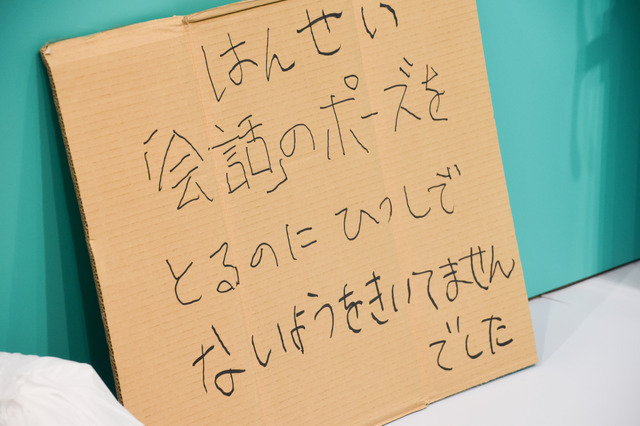 はんせい
「会話」のポーズを
とるのにひっしで
ないようをきいてません
でした